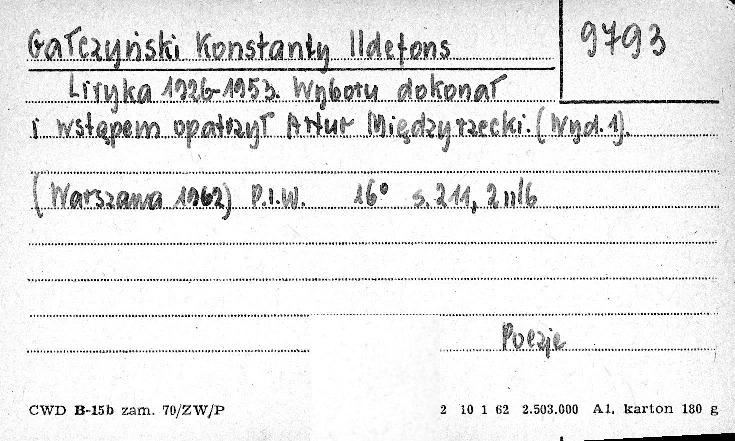 Gałczyński Konstanty Ildefons
9793
Liryka 1926-1953. Wyboru dokonał
i wstępem opatrzył Artur Międzyrzecki. (Wyd. 1).
(Warszawa 1962) P.I.W. 16° s. 211, 2 nlb
Poezje
CWD B-15b zam. 70/ZW/P
2 10 1 62 2.503.000 A1, karton 180 g